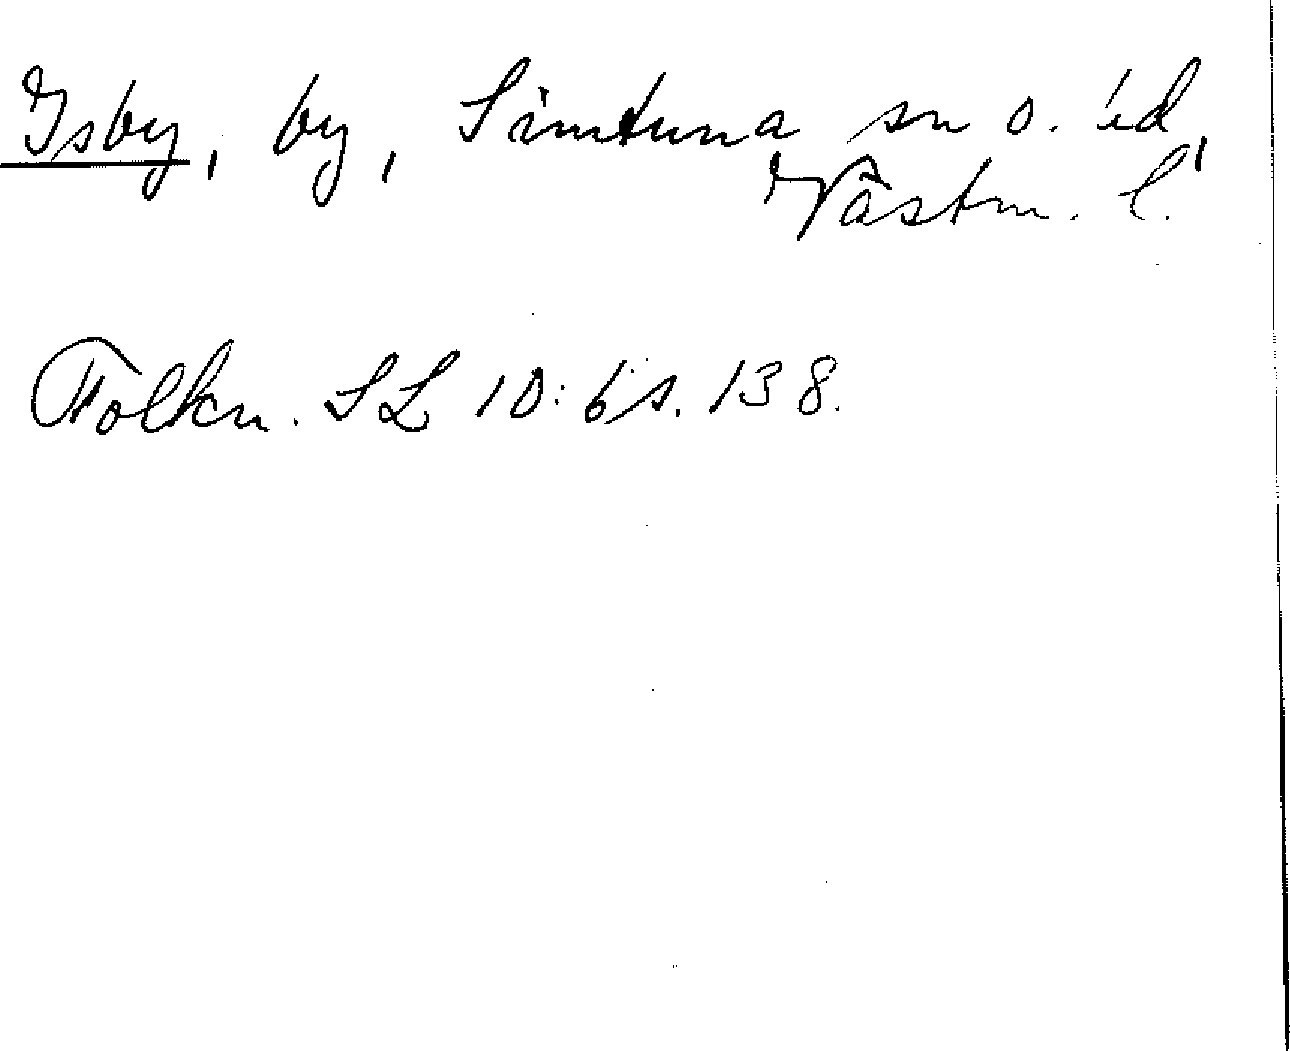 Isby, by, Simtuna sn o. hd,
Västm. l.
Folkn. SL 10:6 s. 138.